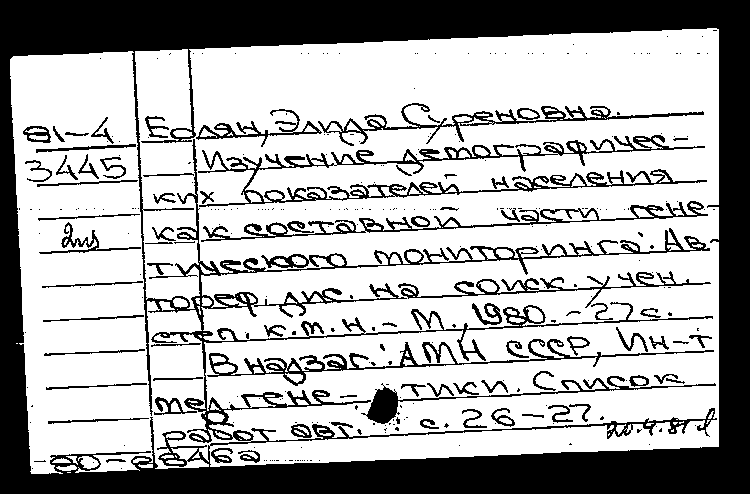 81-4 Еолян, Элида Суреновна.
3445 Изучение демографичес-
ких показателей населения
как составной части гене-
тического мониторинга: Ав-
тореф. дис. на соиск. учен.
степ. к.м.н. - М., 1980. - 27 с.
В надзаг.: АМН СССР, Ин-т
мед. гене- тики. Список
работ авт. с. 26-27.
20.4.81